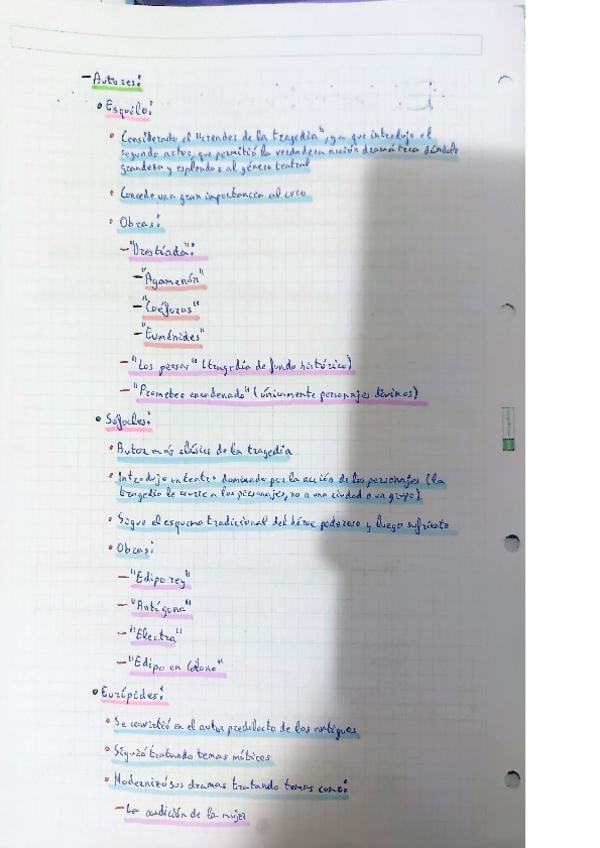 - Autores:
• Esquilo:
• Considerado el "creador de la tragedia", ya que introdujo el
segundo actor, que permitió la verdadera acción dramática dándole
grandeza y esplendor al género teatral
• Concede una gran importancia al coro
• Obras:
- "Orestíada":
- "Agamenón"
- "Coéforas"
- "Euménides"
- "Los persas" (tragedia de fondo histórico)
- "Prometeo encadenado" (únicamente personajes divinos)
• Sófocles:
• Autor más clásico de la tragedia
• Introdujo un teatro dominado por la acción de los personajes (la
tragedia le ocurre a los personajes, no a una ciudad o un grupo)
• Sigue el esquema tradicional del héroe poderoso y luego sufriente
• Obras:
- "Edipo rey"
- "Antígona"
- "Electra"
- "Edipo en Colono"
• Eurípides:
• Se convirtió en el autor predilecto de los antiguos
• Siguió tratando temas míticos
• Modernizó sus dramas tratando temas como:
- La condición de la mujer